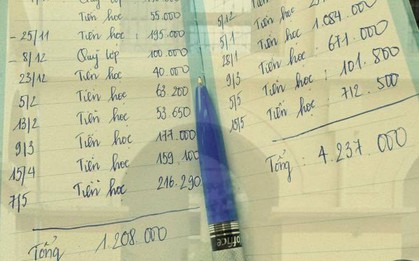 Tiền học 55.000
- 25/11 Tiền học : 195.000
- 8/12 Quỹ lớp 100.000
23/12 Tiền học : 40.000
5/2 Tiền học 63.200
13/2 Tiền học 53.650
9/3 Tiền học 171.000
15/4 Tiền học 159.100
7/5 Tiền học 216.290
Tổng 1.208.000
5/12
5/1 Tiền học : 1.084.000
28/1 Tiền học : 671.000
9/3 Tiền học : 101.800
5/5 Tiền học : 712.500
15/5
Tổng : 4.237.000
office